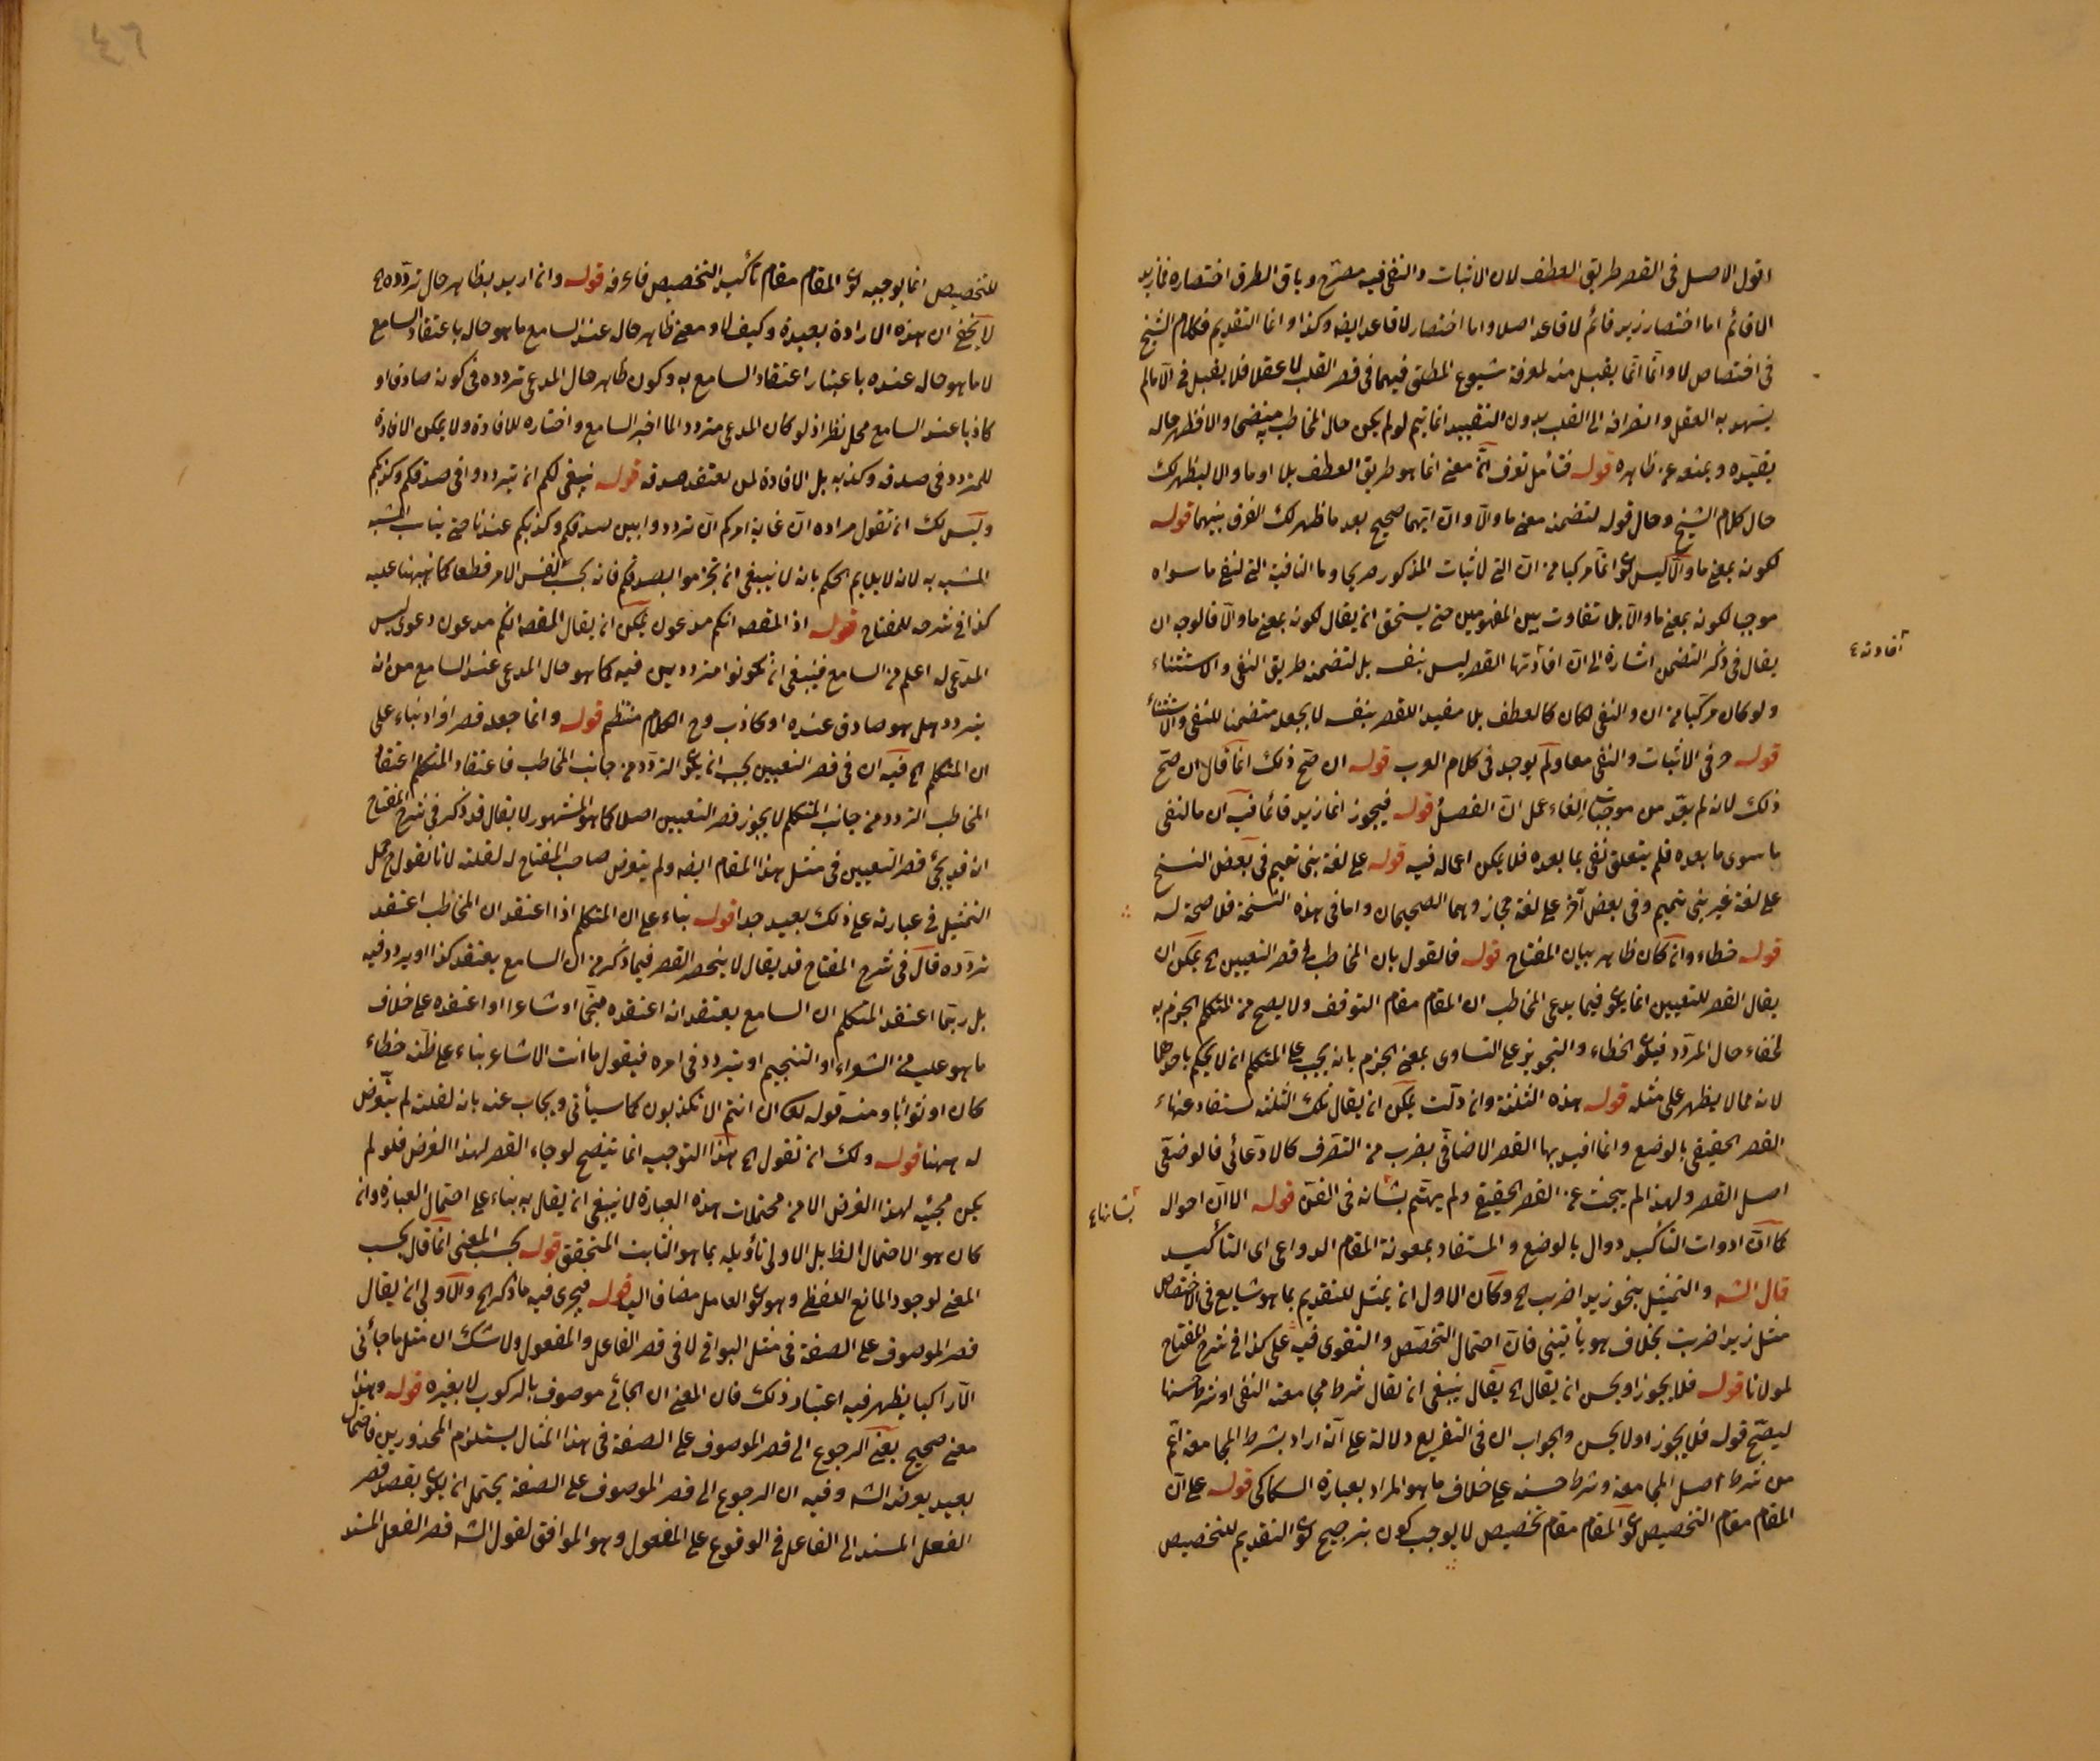 اقول الاصل فى القصر طريق العطف لان الاثبات والنفى فيه مصرح وباقى الطرق اختصاره فمازيد
الا قائم اما اختصار زيد قائم لا قاعد اصلا واما اختصار لا قاعد ايضه وكذا وانما التقديم فكلام الشيخ
فى اختصاص لا وانما انما يقبل منه لمعرفة شيوع المطلق فيهما فى قصر القلب لا عقلا فلا يقبل فى الا مالم
يشهد به العقل وانصرافه الى القلب بدون التقييد انما يتم لو لم يكن حال المخاطب والا فظهر حاله
يقيده ويمنعه عن ظاهره قوله فتأمل تعرف ان معنى انما هو طريق العطف بلا او ما والا ليظهر لك
حال كلام الشيخ وحال قوله لتضمنه معنى ما والا وان ايتهما صحيح بعد ما ظهر لك الفرق بينهما قوله
لكونه بمعنى ما والا ليس انما مركبا من ان التى لاثبات المذكور صريحا وما النافية التى لنفى ما سواه
موجبا لكونه بمعنى ما والا بلا تفاوت بين المفهومين حتى يستحق ان يقال لكونه بمعنى ما والا فالوجه ان
يقال فى ذكر التضمن اشارة الى ان افادتها القصر ليس بنفسه بل لتضمنه طريق النفى والاستثناء
افادته ٤
ولو كان مركبا من ان والنفى لكان كالعطف بلا مفيدا للقصر بنفسه لا بجعله متضمنا للنفى والاستثناء
قوله وفى الاثبات والنفى معا ولم يوجد فى كلام العرب قوله ان صح ذلك انما قال ان صح
ذلك لانه لم يعد من موجبات الغاء عمل ان الفصل قوله فيجوز انما زيد قائما فيه ان ما لنفى
ما سوى ما بعده فلم يتعلق نفى بما بعده فلا يمكن اعماله فيه قوله على لغة بنى تميم فى بعض النسخ
على لغة غير بنى تميم وفى بعض آخر على لغة حجاز وهما الصحيحان واما فى هذه النسخة فلا صحة له
قوله خطاء وان كان ظاهر بيان المفتاح قوله فالقول بان المخاطب فى قصر التعيين الخ يمكن ان
يقال القصر للتعيين انما يكون فيما يدعى المخاطب ان المقام مقام التوقف ولا يصح من المتكلم الجزم به
لخفاء حال المردد فيكون الخطاء والتجويز على التساوى بمعنى الجزم بانه يجب على المتكلم ان لا يحكم باحدهما
لانه مما لا يظهر على مثله قوله هذه الثلثة وان دلت يمكن ان يقال تلك الثلثة يستفاد عنها
القصر الحقيقى بالوضع وانما افيد بها القصر الاضافى بضرب من التصرف كالادعائى فالوضعى
اصل القصر ولهذا لم يبحث عن القصر الحقيقى ولم يهتم بشانه فى الفن قوله الا ان احوال
بشانها ٤
كما ان ادوات التأكيد دوال بالوضع والمستفاد بمعونة المقام الدواعى اى التأكيد
قال الشه والتمثيل بنحو زيدا ضربت الخ وكان الاول ان يمثل للتقديم بما هو شايع فى الاختصاص
مثل زيدا ضربت بخلاف هو يأتينى فان احتمال التخصص والتقوى فيه على كذا فى شرح المفتاح
لمولانا قوله فلا يجوز او يحسن ان يقال الخ يقال ينبغى ان نقال شرط مجامعته النفى او شرط حسنها
ليصح قوله فلا يجوز او لا يحسن والجواب ان فى التفريع دلالة على انه اراد بشرط المجامعة اعم
من شرط اصل المجامعة وشرط حسنه على خلاف ما هو المراد بعبارة السكاكى قوله على ان
المقام مقام التخصيص المقام مقام تخصيص لا يوجب كون بترجيح التقديم للتخصيص
٤٦
للتخصيص انما يوجبه المقام مقام تأكيد التخصيص فاعرفه قوله وان اريد بظاهر حال تردده الخ
لا يخفى ان هذه الارادة بعيدة وكيف لا ومعنى ظاهر حاله عند السامع ما هو حاله باعتقاد السامع
لا ما هو حاله عنده باعتبار اعتقاد السامع به وكون ظاهر حال المدعى تردده فى كونه صادقا او
كاذبا عند السامع محل نظر اذ لو كان المدعى مترددا لما اخبر السامع واختاره للافادة ولا يمكن الافادة
للمتردد فى صدقه وكذبه بل الافادة لمن يعتقد صدقه قوله ينبغى لكم ان تترددوا فى صدقكم وكذبكم
وليس لك ان تقول مراده ان غاية امركم ان ترددوا بين صدقكم وكذبكم عندنا حتى يناسب المشبه
المشبه به لانه لا يلايم الحكم بانه لا ينبغى ان تجزموا بصدقكم فانه بحسب نفس الامر قطعا كما نبهنا عليه
كذا فى شرحه للمفتاح قوله اذ المقصد انكم مدعون يمكن ان يقال المقصد انكم مدعون دعوى ليس
المدعى له اعلم من السامع فينبغى ان تكونوا مترددين فيه كما هو حال المدعى عند السامع من انه
يتردد هل هو صادق عنده او كاذب وح الكلام منتظم قوله وانما جعله قصر افراد بناء على
ان المتكلم الخ فيه ان فى قصر التعيين يجب ان يكون التردد من جانب المخاطب فاعتقاد المتكلم اعتقاد
المخاطب التردد من جانب المتكلم لا يجوز قصر التعيين اصلا كما هو المشهور لا يقال قد ذكر فى شرح المفتاح
انه قد يجئ قصر التعيين فى مثل هذا المقام ايضه ولم يتعرض صاحب المفتاح له لقلته لانا نقول حمل
التمثيل فى عبارته على ذلك بعيد جدا قوله بناء على ان المتكلم اذا اعتقد ان المخاطب اعتقد
تردده قال فى شرح المفتاح قد يقال لا ينحصر القصر فيما ذكر من ان السامع يعتقد كذا او يردد فيه
بل ربما اعتقد المتكلم ان السامع يعتقد انه اعتقده منجما او شاعرا او اعتقده على خلاف
ما هو عليه من الشعراء او التنجيم او يتردد فى امره فيقول ما انت الا شاعر بناء على ظنه خطاء
كان او ثوابا ومنه قوله تعالى ان انتم الا تكذبون كما سيأتى ويجاب عنه بانه لقلته لم يتعرض
له ههنا قوله ولك ان تقول الخ هذا التوجيه انما يتضح لو جاء القصر لهذا الغرض فلو لم
يكن مجيئه لهذا الغرض الا من محتملات هذه العبارة لا ينبغى ان يقال به بناء على احتمال العبارة وان
كان هو الاحتمال الظ بل الاولى تأويله بما هو الثابت المتحقق قوله بحسب المعنى انما قال بحسب
المعنى لوجود المانع اللفظى وهو كون العامل مضافا اليه قوله فيجرى فيه ما ذكر الخ والاولى ان يقال
قصر الموصوف على الصفة فى مثل البواقى لا فى قصر الفاعل والمفعول ولا شك ان مثل ما جائنى
الا راكبا يظهر فيه اعتبار ذلك فان المعنى ان الجائى موصوف بالركوب لا بغيره قوله وهذا
معنى صحيح يعنى الرجوع الى قصر الموصوف على الصفة فى هذا المثال يستلزم المحذورين فاحتمال
بعيد يعرفه الشه وفيه ان الرجوع الى قصر الموصوف على الصفة يحتمل ان يكون بقصد قصر
الفعل المسند الى الفاعل فى الوقوع على المفعول وهو الموافق لقول الشه قصر الفعل المسند